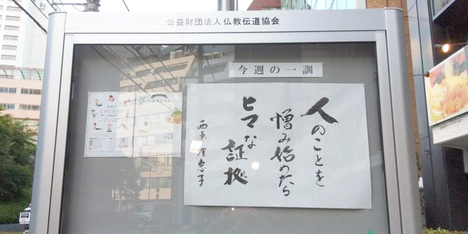 公益財団法人 仏教伝道協会
今週の一訓
人のことを
憎み始めたら
ヒマな証拠
西原理恵子